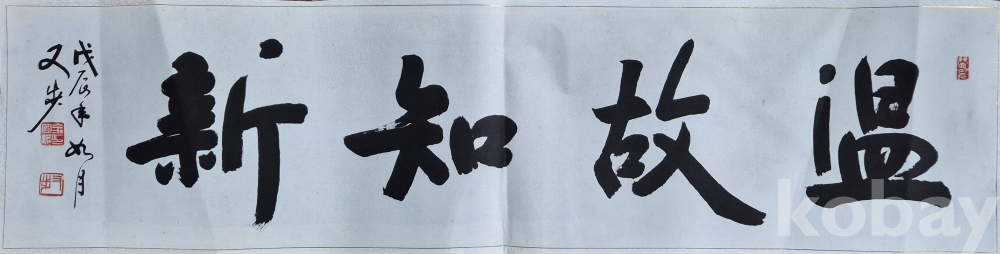 溫故知新
戊辰年如月
又步
kobay